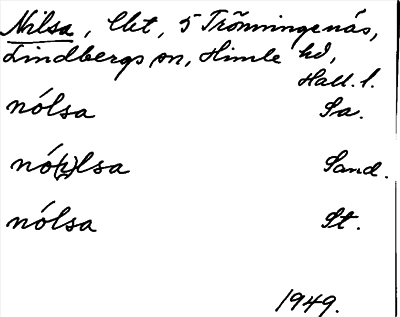 Nilsa, Ukt, 5 Trönningenäs,
Lindbergs sn, Himle hd,
Hall. l.
nólsa Sa.
nó(i)lsa Sand.
nólsa St.
1949.